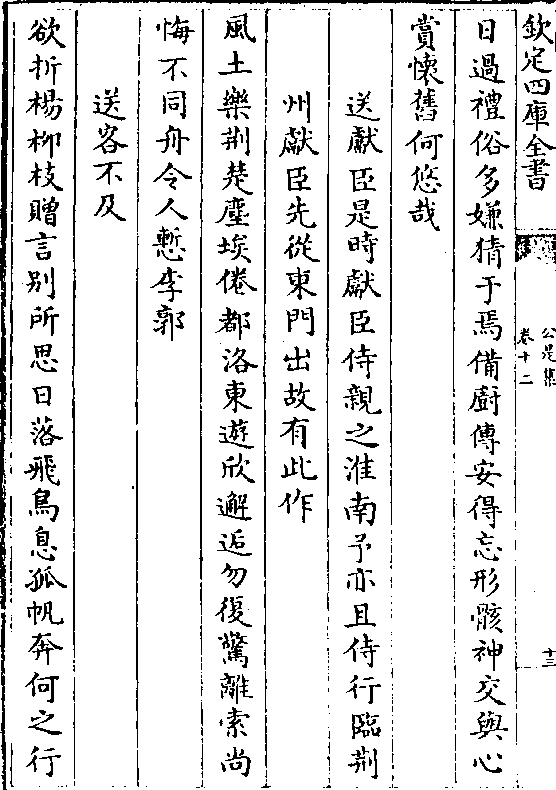 欽定四庫全書
公是集
卷十二
十三
日過禮俗多嫌猜于焉備廚傳安得忘形骸神交與心
賞懷舊何悠哉
送獻臣是時獻臣侍親之淮南予亦且侍行臨荆
州獻臣先從東門出故有此作
風土樂荆楚塵埃倦都洛東遊欣邂逅勿復驚離索尚
悔不同舟令人慙李郭
送客不及
欲折楊柳枝贈言别所思日落飛鳥息孤帆奔何之行